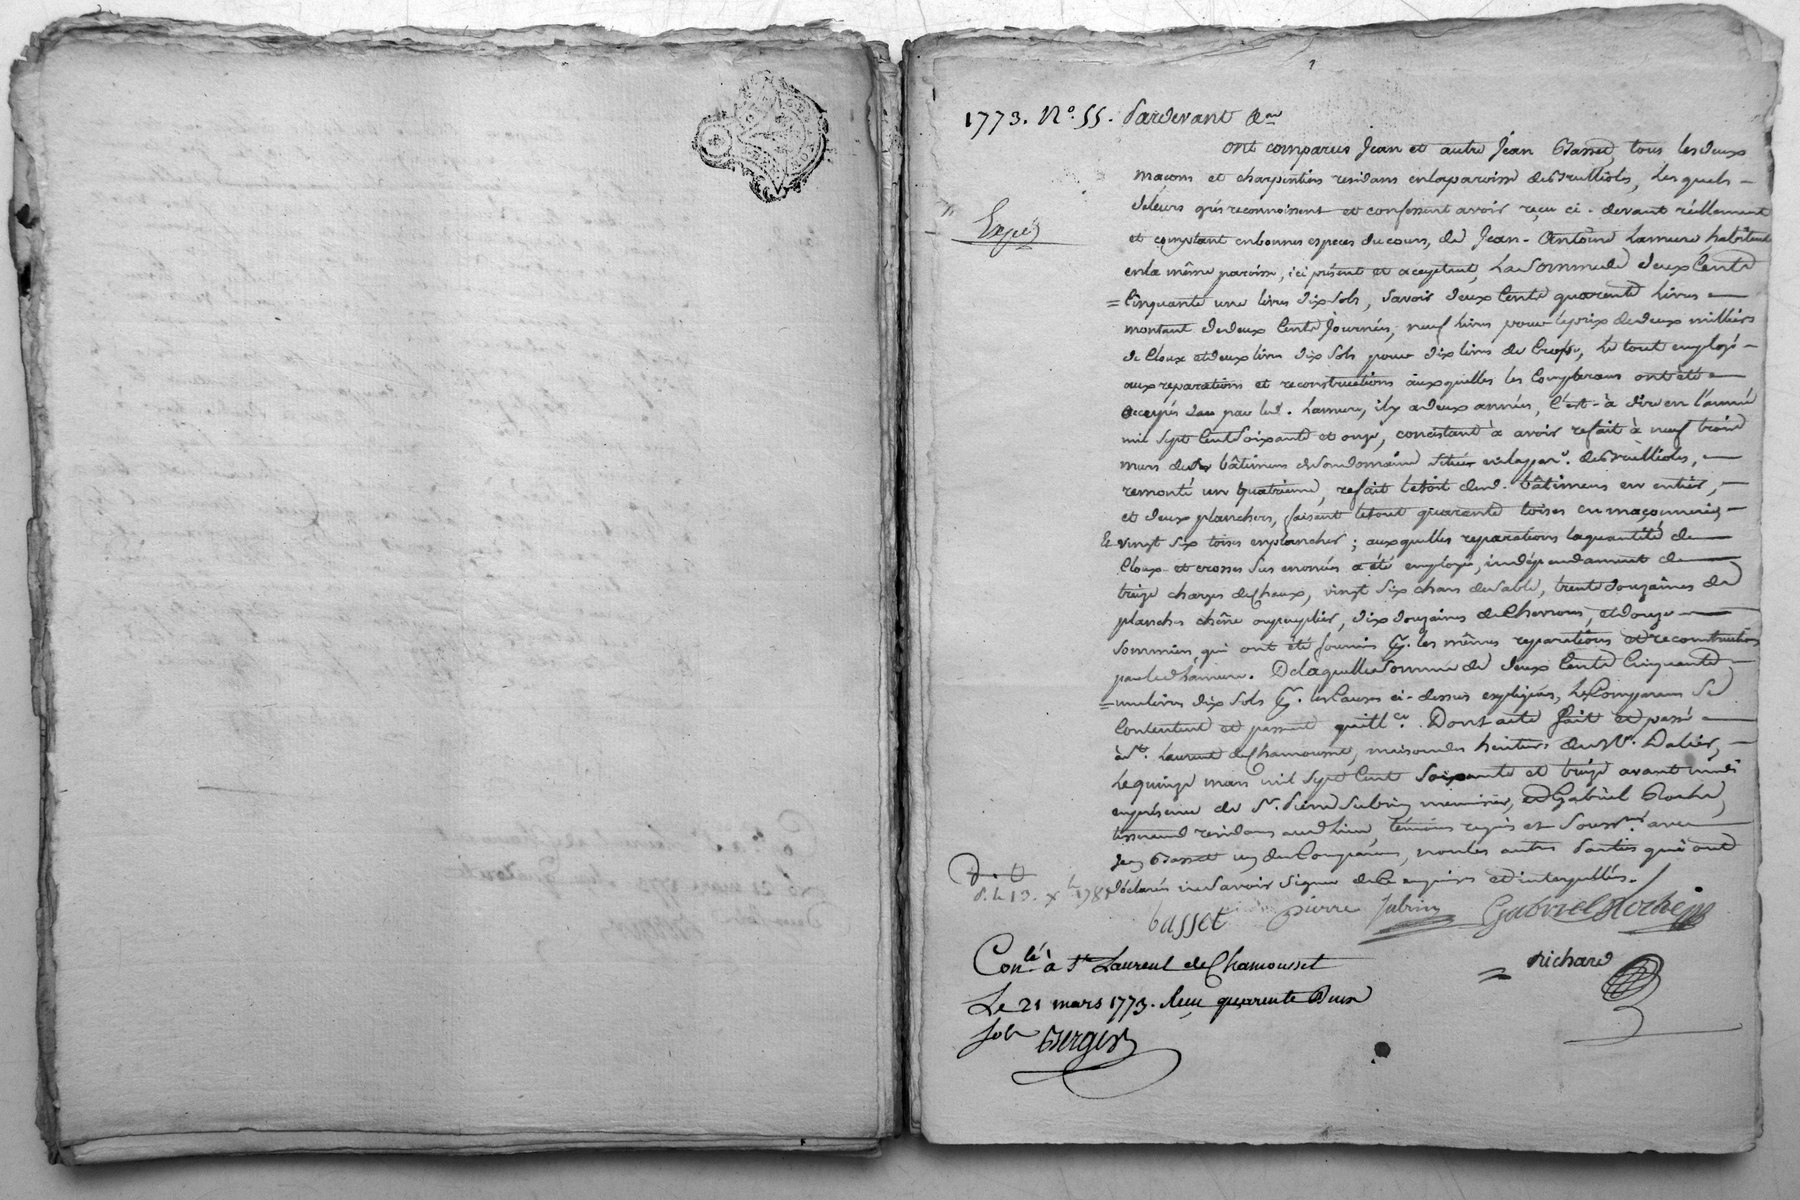 1773. N°. 55. Pardevant &c.
ont comparus Jean et autre Jean Basset, tous les deux
maçons et charpentiers residans en la paroisse des Brulliols, lesquels
de leurs grés reconnoissent et confessent avoir reçu ci-devant réellement
et comptant en bonnes especes du cours, de Jean-Antoine Lamure habitant
Exped
en la même paroisse, ici présent et acceptant, la somme de deux Cents
Cinquante une livres dix sols, savoir deux Cents quarente livres
montant de deux Cents Journées, neuf livres pour le prix de deux milliers
de Cloux et deux livres dix sols pour dix livres de Crosse, le tout employé
aux reparations et reconstructions auxquelles les Comparans ont été
occupés par led. Lamure, il y a deux années, C'est-à dire en l'année
mil sept Cent soixante et onze, concistant à avoir refait à neuf trois
murs des bâtimens de son domaine situés en lad. par. des Brulliols,
remonté un quatrieme, refait le toit desd. bâtimens en entier,
et deux planchers, faisant le tout quarante toises en maçonneries,
et vingt six toises en plancher; auxquelles reparations la quantité de
Cloux et crosses sus enoncés a été employée, indépendament de
treize charges de Chaux, vingt six chars de sable, trente douzaines de
planches chêne ou peuplier, dix douzaines de Chevrons, et douze
sommiers, qui ont été fournis pr. les mêmes reparations et reconstructions
par led. Lamure. De laquelle somme de deux Cents Cinquante
une livres dix sols pr. les Causes ci-dessus expliquées, les Comparans se
Contentent et passent quittce. Dont acte fait et passé
à St. Laurent de Chamousset, maison des heritiers du Sr. Dalier,
le quinze mars mil sept Cent soixante et treize avant midi
en présence de Sr. Pierre Subrin menuisier, et Gabriel Roche,
tisserand residans aud. lieu, témoins requis et soussnés avec
Jean Basset un des Comparans, non les autres Parties qui ont
déclarés ne savoir signer de ce enquises et interpellés.
basset pierre subrin Gabriel Roche
richard
Conlé à St Laurent de Chamousset
Le 21 mars 1773. Reçu quarente Deux
sols Berger